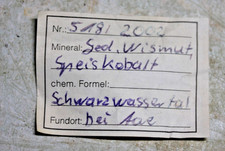 Nr.: 5181 2002
Mineral: Ged. Wismut,
Speiskobalt
chem. Formel:
Schwarzwassertal
Fundort: bei Aue